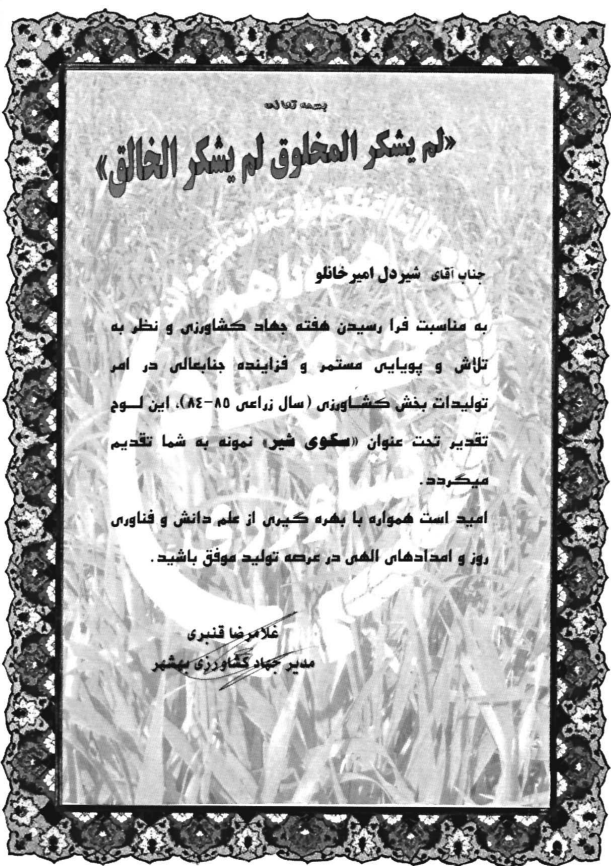 بسمه تعالی
«لم یشکر المخلوق لم یشکر الخالق»
جناب آقای شیردل امیرخانلو
به مناسبت فرا رسیدن هفته جهاد کشاورزی و نظر به
تلاش و پویایی مستمر و فزاینده جنابعالی در امر
تولیدات بخش کشاورزی (سال زراعی ۸۵-۸٤)، این لوح
تقدیر تحت عنوان «سکوی شیر» نمونه به شما تقدیم
میگردد.
امید است همواره با بهره گیری از علم دانش و فناوری
روز و امدادهای الهی در عرصه تولید موفق باشید.
غلامرضا قنبری
مدیر جهاد کشاورزی بهشهر
جهاد
کشاورزی